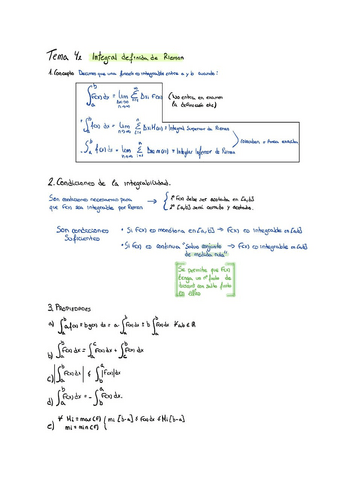 Tema 4: Integral definida de Rieman
1. Concepto Decimos que una función es integrable entre a y b cuando:
∫ₐᵇ f(x) dx = lim n→∞ Σ i=1 n Δxᵢ f(x) (No entra en examen la definición etc)
· ∫ₐᵇ f(x) dx = lim n→∞ Σ i=1 n Δxᵢ M(x) → Integral Superior de Rieman
· ∫ₐᵇ f(x) dx = lim n→∞ Σ i=1 n Δxᵢ m(x) → Integral inferior de Rieman
2. Condiciones de la integrabilidad.
Son condiciones necesarias para que f(x) sea integrable por Rieman →
1º f(x) debe ser acotada en [a,b]
2º [a,b] será cerrado y acotado.
Son condiciones Suficientes
· Si f(x) es monótona en [a,b] → f(x) es integrable en [a,b]
· Si f(x) es continua "salvo conjunto de medida nula" → f(x) es integrable en [a,b]
Se permite que f(x) tenga un nº finito de
3. Propiedades
a) ∫ₐᵇ a f(x) + b g(x) dx = a · ∫ₐᵇ f(x) dx + b ∫ₐᵇ f(x) dx ∀ a,b ∈ ℝ
b) ∫ₐᵇ f(x) dx = ∫ₐᶜ f(x) dx + ∫ f(x) dx
c) |∫ₐᵇ f(x) dx| ≤ ∫ₐᵇ |f(x)| dx
d) ∫ₐᵇ f(x) dx = - ∫ f(x) dx.
e) Mi = max (f) mi = min (f) { mi [b-a] ≤ f(x) dx ≤ Mi [b-a]